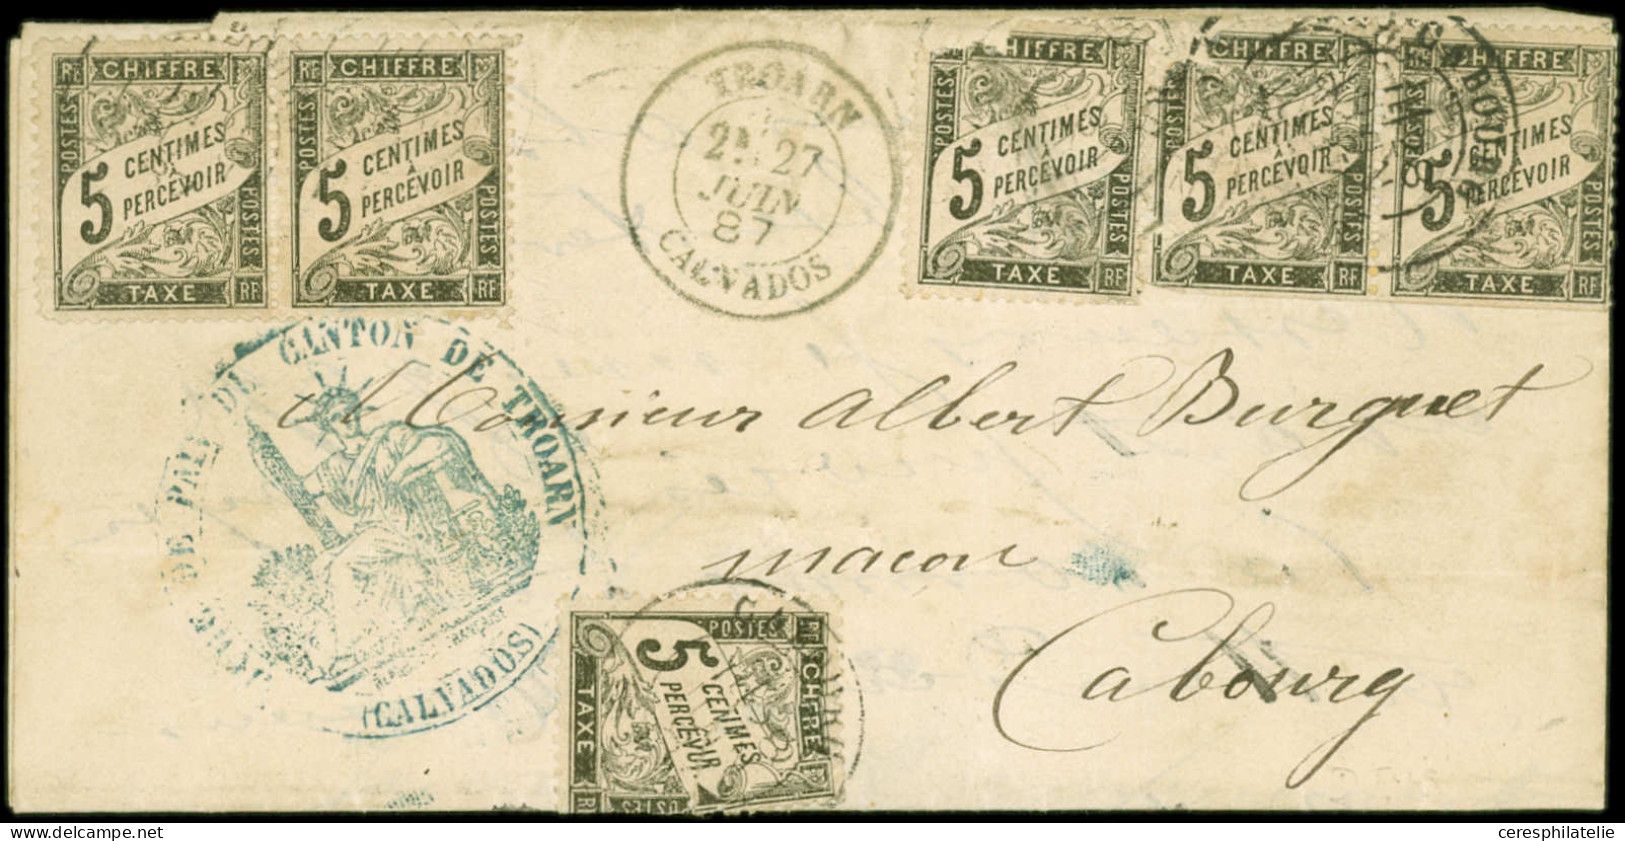 RF CHIFFRE
POSTES
5 CENTIMES
À
PERCEVOIR
POSTES
TAXE RF
RF CHIFFRE
POSTES
5 CENTIMES
À
PERCEVOIR
POSTES
TAXE RF
TROARN
27
JUIN
87
CALVADOS
CHIFFRE
POSTES
5 CENTIMES
À
PERCEVOIR
POSTES
TAXE RF
CHIFFRE
POSTES
5 CENTIMES
À
PERCEVOIR
POSTES
TAXE RF
CHIFFRE
POSTES
5 CENTIMES
PERCEVOIR
POSTES
TAXE RF
CABOURG
DE PAIX DU CANTON DE TROARN
(CALVADOS)
Monsieur Albert Burguet
macon
Cabourg
POSTES RF
CHIFFRE
5 CENTIMES
PERCEVOIR
TAXE
POSTES
delcampe.net
ceresphilatelie